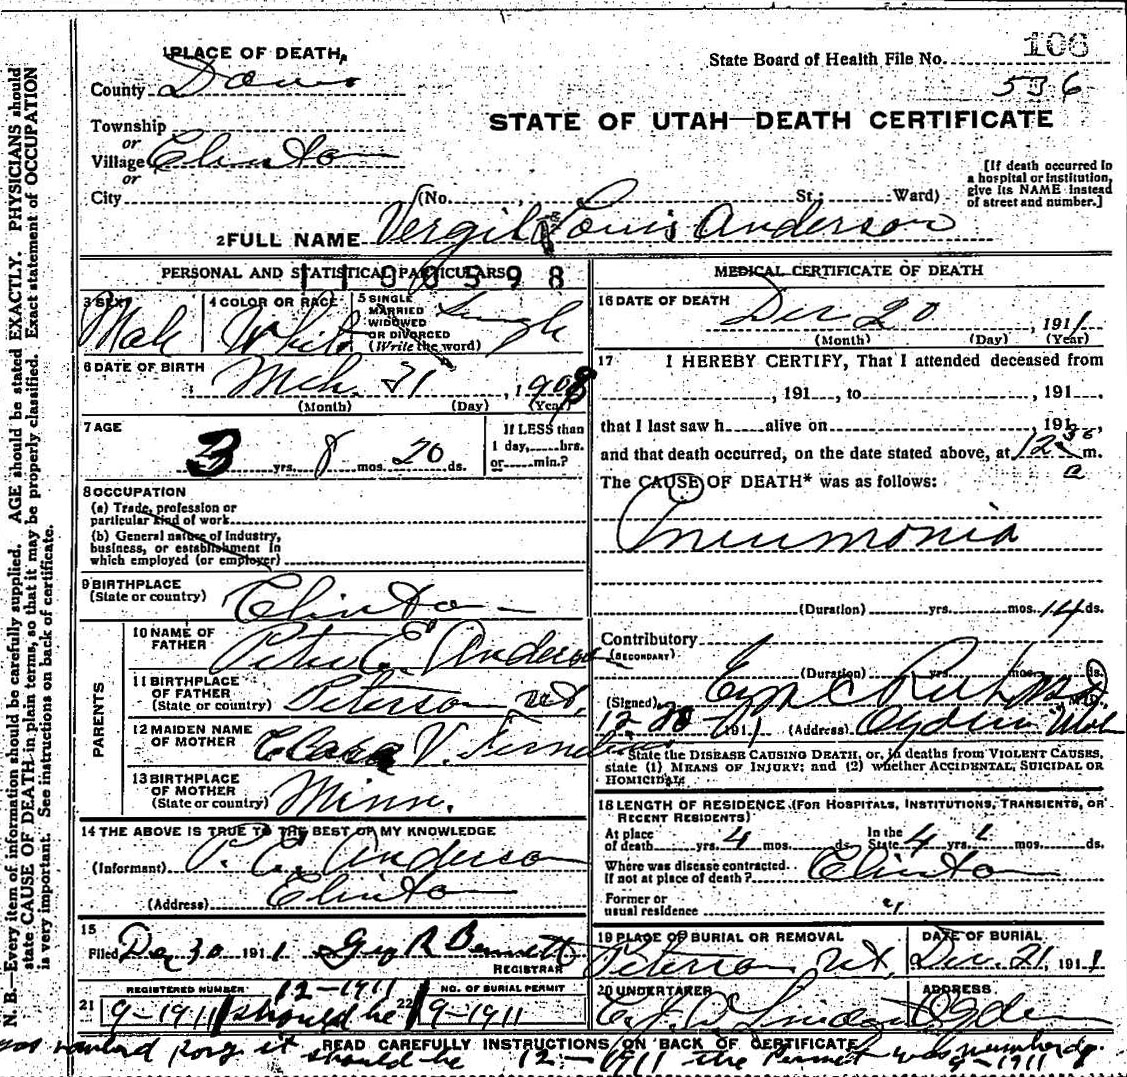 PLACE OF DEATH
State Board of Health File No. 106
County Davis
536
STATE OF UTAH—DEATH CERTIFICATE
Township
or
Village Clinton
or
City (No. St.; Ward)
[If death occurred in
a hospital or institution,
give its NAME instead
of street and number.]
2 FULL NAME Vergil Louis Anderson
PERSONAL AND STATISTICAL PARTICULARS
1100598
3 SEX Male
4 COLOR OR RACE White
5 SINGLE
MARRIED
WIDOWED
OR DIVORCED
(Write the word) Single
6 DATE OF BIRTH Mch. 31, 1908
(Month) (Day) (Year)
7 AGE 3 yrs. 8 mos. 20 ds.
If LESS than
1 day, hrs.
or min.?
8 OCCUPATION
(a) Trade, profession or
particular kind of work
(b) General nature of industry,
business, or establishment in
which employed (or employer)
9 BIRTHPLACE
(State or country) Clinton
PARENTS
10 NAME OF
FATHER Peter E. Anderson
11 BIRTHPLACE
OF FATHER
(State or country) Peterson Ut.
12 MAIDEN NAME
OF MOTHER Clara V.
13 BIRTHPLACE
OF MOTHER
(State or country) Minn.
14 THE ABOVE IS TRUE TO THE BEST OF MY KNOWLEDGE
(Informant) P. E. Anderson
(Address) Clinton
15
Filed Dec 30 1911 Geo R Bennett
REGISTRAR
REGISTERED NUMBER 12-1911 NO. OF BURIAL PERMIT
21 9-1911 should be 22 9-1911
MEDICAL CERTIFICATE OF DEATH
16 DATE OF DEATH
Dec 20, 1911
(Month) (Day) (Year)
17 I HEREBY CERTIFY, That I attended deceased from
, 191 , to , 191 .
that I last saw h alive on 191 ,
and that death occurred, on the date stated above, at 12 30 a m.
The CAUSE OF DEATH* was as follows:
Pneumonia
(Duration) yrs. mos. 14 ds.
Contributory
(SECONDARY)
(Duration) yrs. mos. ds.
(Signed) M.D.
12-20-1911 (Address) Ogden Utah
State the DISEASE CAUSING DEATH, or, in deaths from VIOLENT CAUSES,
state (1) MEANS OF INJURY; and (2) whether ACCIDENTAL, SUICIDAL OR
HOMICIDAL
18 LENGTH OF RESIDENCE (FOR HOSPITALS, INSTITUTIONS, TRANSIENTS, OR
RECENT RESIDENTS)
At place
of death yrs. 4 mos. ds. In the
State 4 yrs. mos. ds.
Where was disease contracted
If not at place of death? Clinton
Former or
usual residence "
19 PLACE OF BURIAL OR REMOVAL
Peterson Ut.
DATE OF BURIAL
Dec. 21, 1911
20 UNDERTAKER
ADDRESS
Ogden
READ CAREFULLY INSTRUCTIONS ON BACK OF CERTIFICATE
it should be 12-1911 the Permit was numbered 9-1911
N. B.—Every item of information should be carefully supplied. AGE should be stated EXACTLY. PHYSICIANS should
state CAUSE OF DEATH in plain terms, so that it may be properly classified. Exact statement of OCCUPATION
is very important. See instructions on back of certificate.